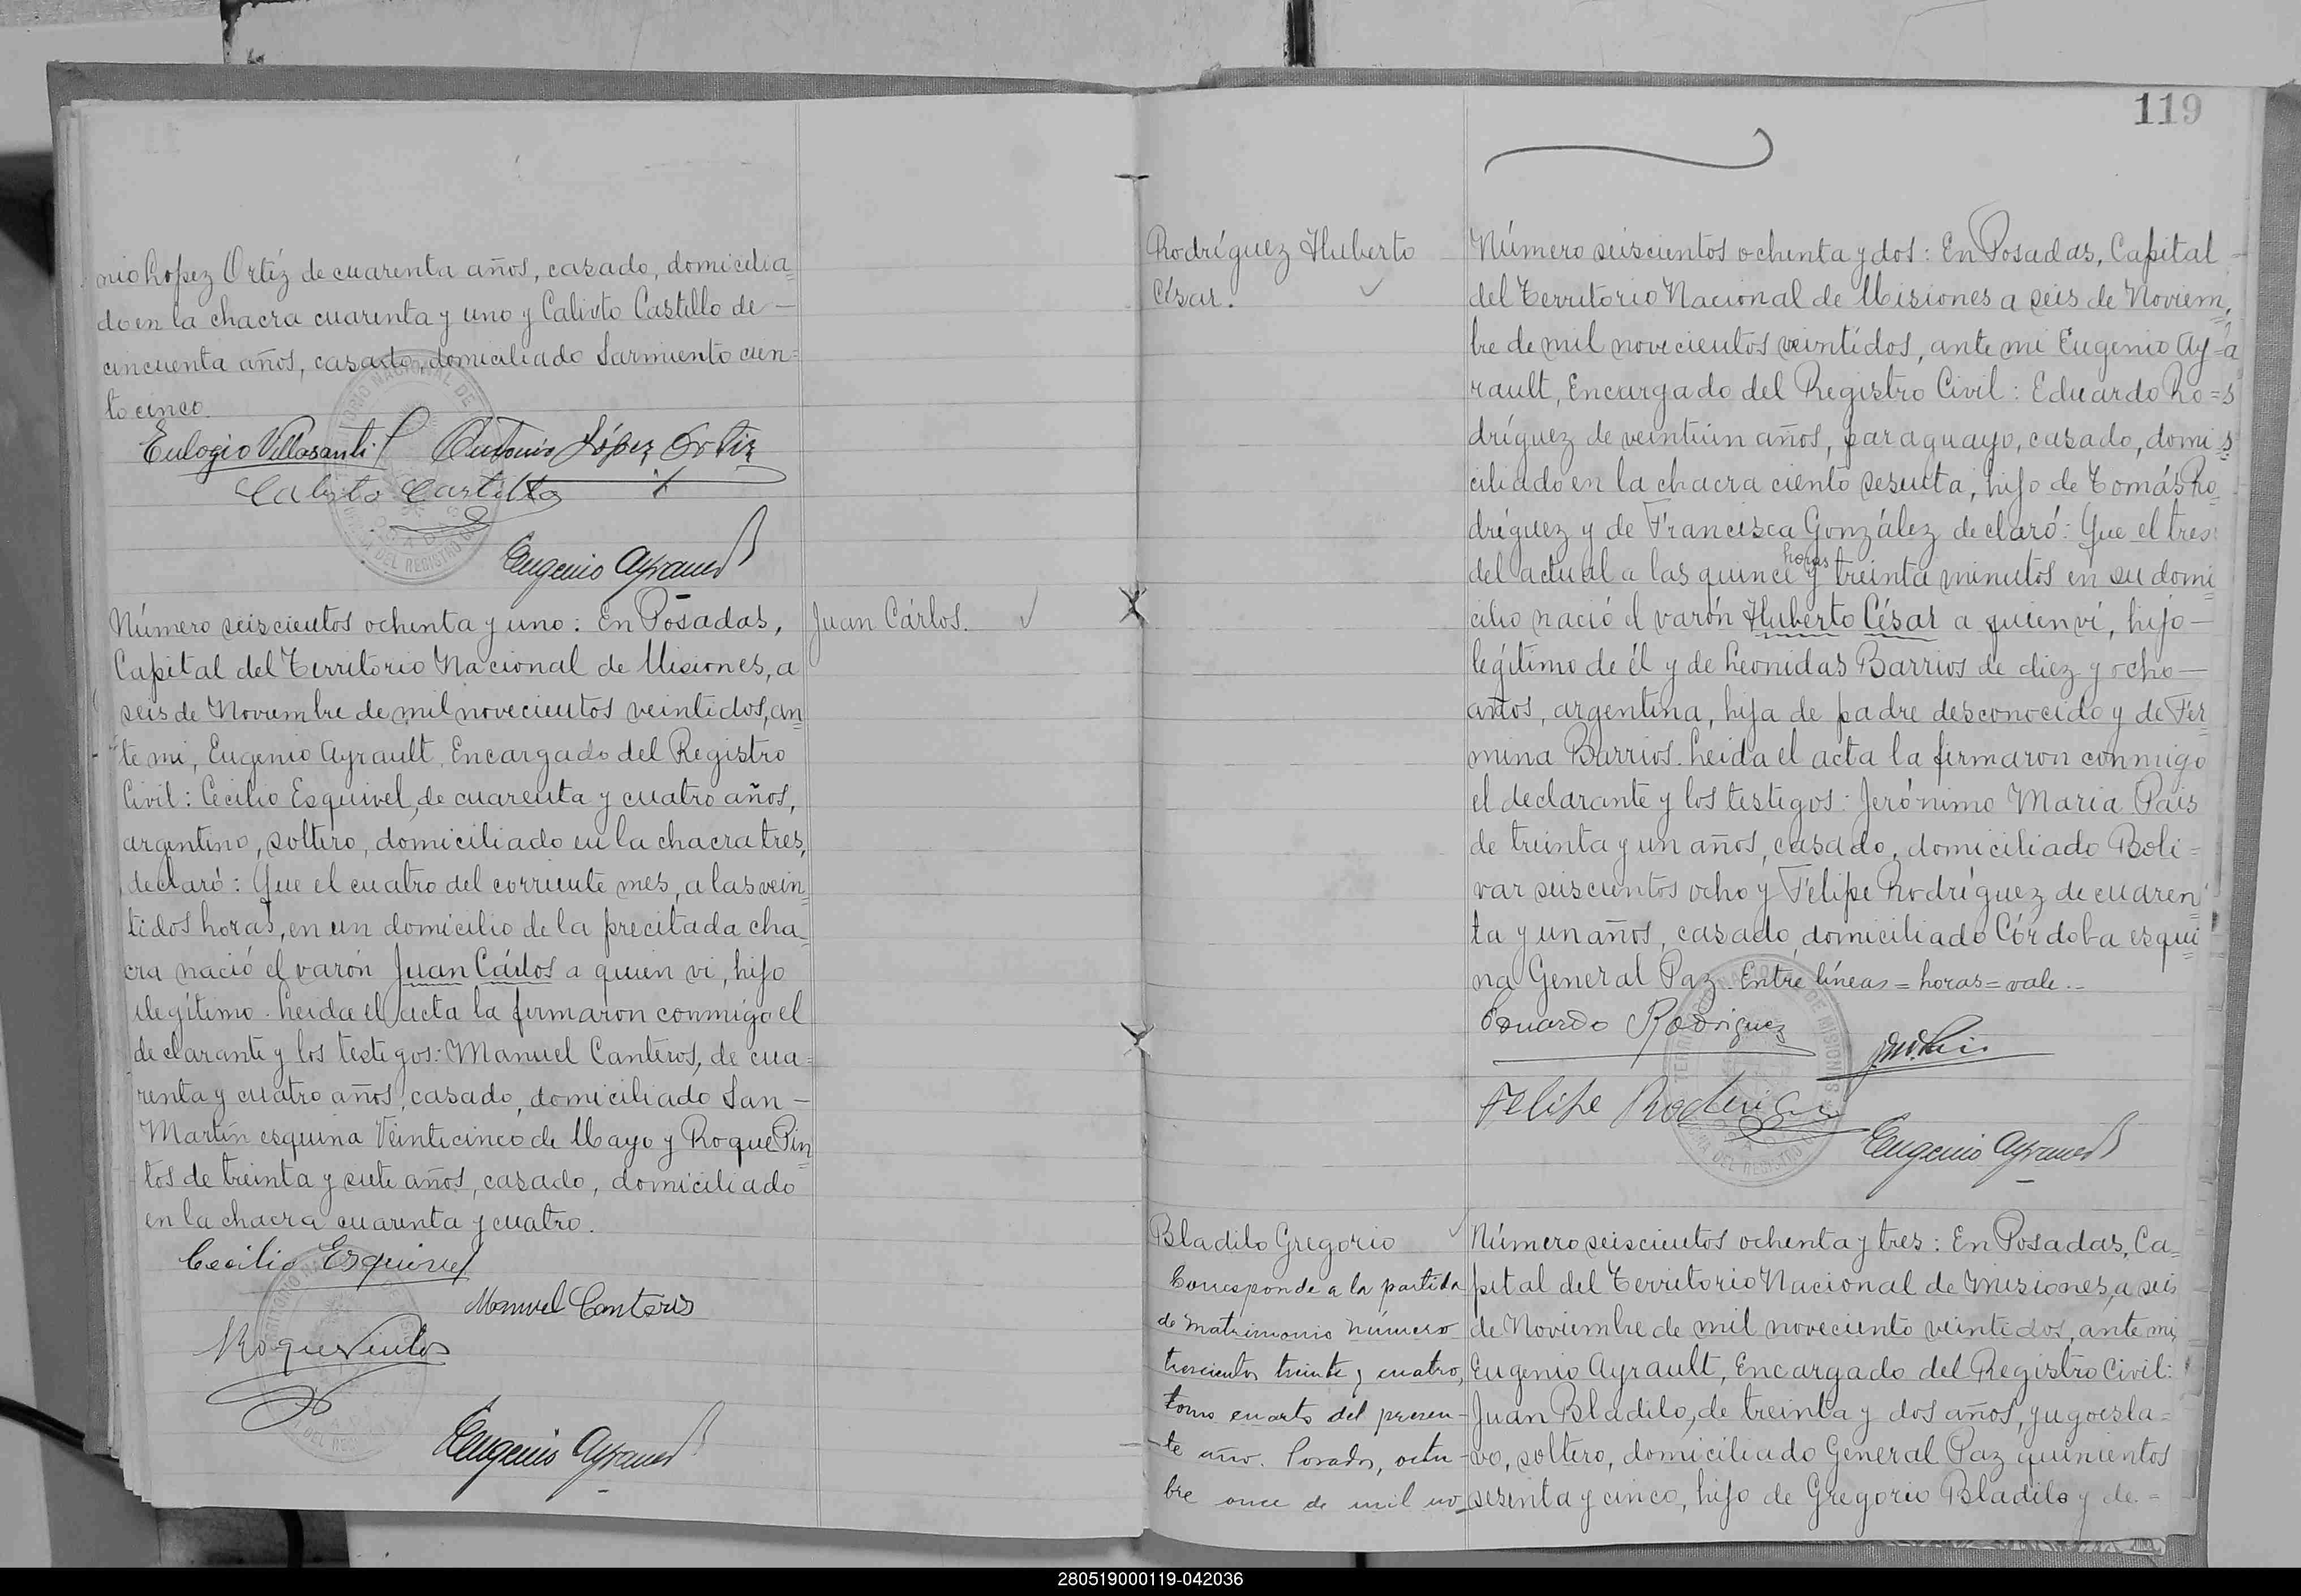 nio Lopez Ortíz de cuarenta años, casado, domicilia=
do en la chacra cuarenta y uno y Calixto Castillo de —
cincuenta años, casado, domiciliado Sarmiento cien=
to cinco.
Eulogio Villasanti Antonio López Ortiz
Calisto Castillo
Eugenio Ayrault
Número seiscientos ochenta y uno: En Posadas,
Capital del Territorio Nacional de Misiones, a
seis de Noviembre de mil novecientos veintidos, an=
te mi, Eugenio Ayrault, Encargado del Registro
Civil: Cecilio Esquivel, de cuarenta y cuatro años,
argentino, soltero, domiciliado en la chacra tres,
declaró: Que el cuatro del corriente mes, a las vein=
tidos horas, en un domicilio de la precitada cha=
cra nació el varón Juan Cárlos a quien vi, hijo
ilegítimo. Leida el acta la firmaron conmigo el
declarante y los testigos: Manuel Canteros, de cua=
renta y cuatro años, casado, domiciliado San —
Martín esquina Veinticinco de Mayo y Roque Pin=
tos de treinta y siete años, casado, domiciliado
en la chacra cuarenta y cuatro.
Cecilio Esquivel
Manuel Canteros
Roque Pintos
Eugenio Ayrault
Juan Cárlos.
119
Rodríguez Huberto
César.
Número seiscientos ochenta y dos: En Posadas, Capital
del Territorio Nacional de Misiones a seis de Noviem=
bre de mil novecientos veintidos, ante mi Eugenio Ay=
rault, Encargado del Registro Civil: Eduardo Ro=
dríguez de veintiún años, paraguayo, casado, domi=
ciliado en la chacra ciento sesenta, hijo de Tomás Ro=
dríguez y de Francisca González declaró: Que el tres
del actual a las quince horas y treinta minutos en su domi=
cilio nació el varón Huberto César a quien vi, hijo —
legítimo de él y de Leonidas Barrios de diez y ocho —
años, argentina, hija de padre desconocido y de Fer=
mina Barrios. Leida el acta la firmaron conmigo
el declarante y los testigos: Jerónimo Maria Pais
de treinta y un años, casado, domiciliado Boli=
var seiscientos ocho y Felipe Rodríguez de cuaren=
ta y un años, casado, domiciliado Córdoba esqui=
na General Paz. Entre líneas = horas = vale.-
Eduardo Rodriguez
Felipe Rodriguez
Eugenio Ayrault
Bladilo Gregorio
Corresponde a la partida
de matrimonio número
trescientos treinta y cuatro,
tomo cuarto del presen-
te año. Posadas, octu-
bre once de mil no-
Número seiscientos ochenta y tres: En Posadas, Ca=
pital del Territorio Nacional de Misiones, a seis
de Noviembre de mil noveciento veintidos, ante mi,
Eugenio Ayrault, Encargado del Registro Civil:
Juan Bladilo, de treinta y dos años, yugoesla=
vo, soltero, domiciliado General Paz quinientos
sesenta y cinco, hijo de Gregorio Bladilo y de =
280519000119-042036